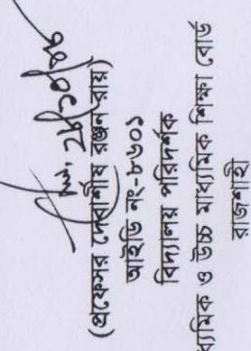 (প্রফেসর দেবাশীষ রঞ্জন রায়)
আইডি নং-৮৬০১
বিদ্যালয় পরিদর্শক
ধ্যমিক ও উচ্চ মাধ্যমিক শিক্ষা বোর্ড
রাজশাহী